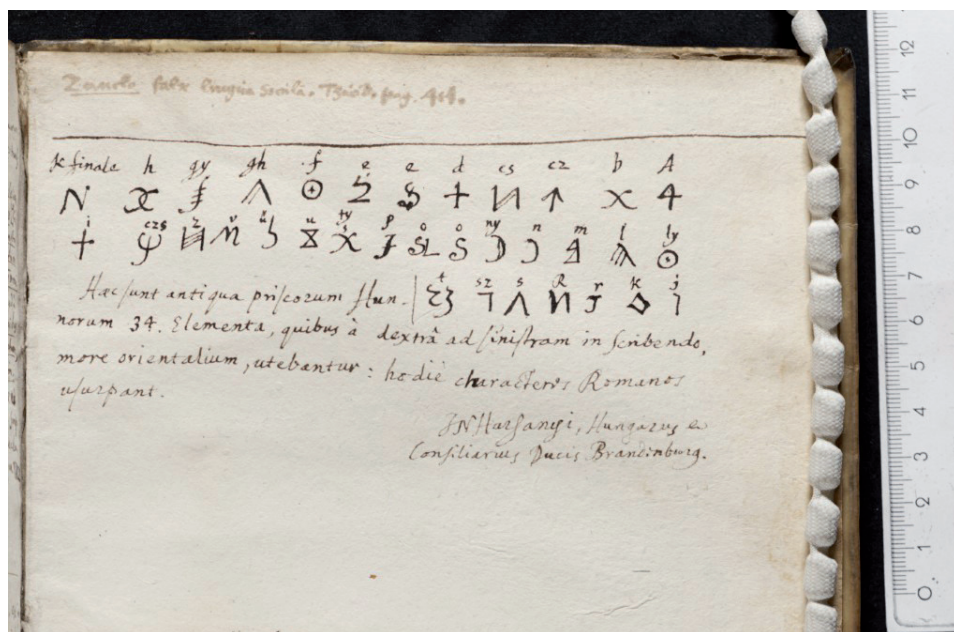 Zanclo falx lingua Sicilâ. pag. 414.
k finale h gy gh f é e d cs cz b A
i czs z v ü u ty p ö o ny n m l ly
t sz s R r k j
Hæc sunt antiqua priscorum Hun-
norum 34. Elementa, quibus à dextrâ ad sinistram in scribendo,
more orientalium, utebantur: hodiè characteres Romanos
usurpant.
JNHarsanyi, Hungarus et
Consiliarius Ducis Brandinburg.
12
11
10
9
8
7
6
5
4
3
2
1
0